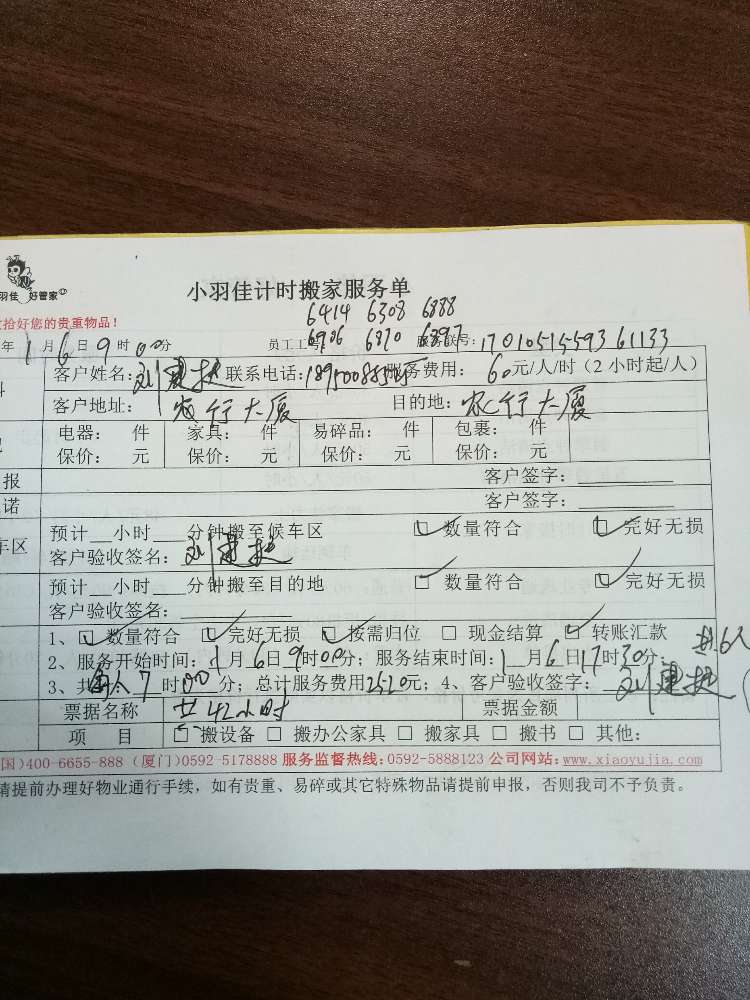 羽佳 好管家
小羽佳计时搬家服务单
拾好您的贵重物品！
6414 6308 6888
6906 6870 6897
年1月6日9时00分 员工工号: 服务联号:1701051559361133
客户姓名: 联系电话: 服务费用: 60元/人/时（2小时起/人）
客户地址: 农行大厦 目的地: 农行大厦
电器: 件 家具: 件 易碎品: 件 包裹: 件
保价: 元 保价: 元 保价: 元 保价: 元
报 客户签字:
诺 客户签字:
预计__小时___分钟搬至候车区 数量符合 完好无损
车区 客户验收签名:
预计__小时___分钟搬至目的地 数量符合 完好无损
客户验收签名:
1、数量符合 完好无损 按需归位 现金结算 转账汇款
共6人
2、服务开始时间:1月6日9时00分; 服务结束时间:1月6日17时30分;
3、共 每人7时00分; 总计服务费用2520元; 4、客户验收签字:
票据名称 共42小时 票据金额
项 目 搬设备 搬办公家具 搬家具 搬书 其他:
国)400-6655-888 (厦门)0592-5178888 服务监督热线:0592-5888123 公司网站:www.xiaoyujia.com
请提前办理好物业通行手续，如有贵重、易碎或其它特殊物品请提前申报，否则我司不予负责。